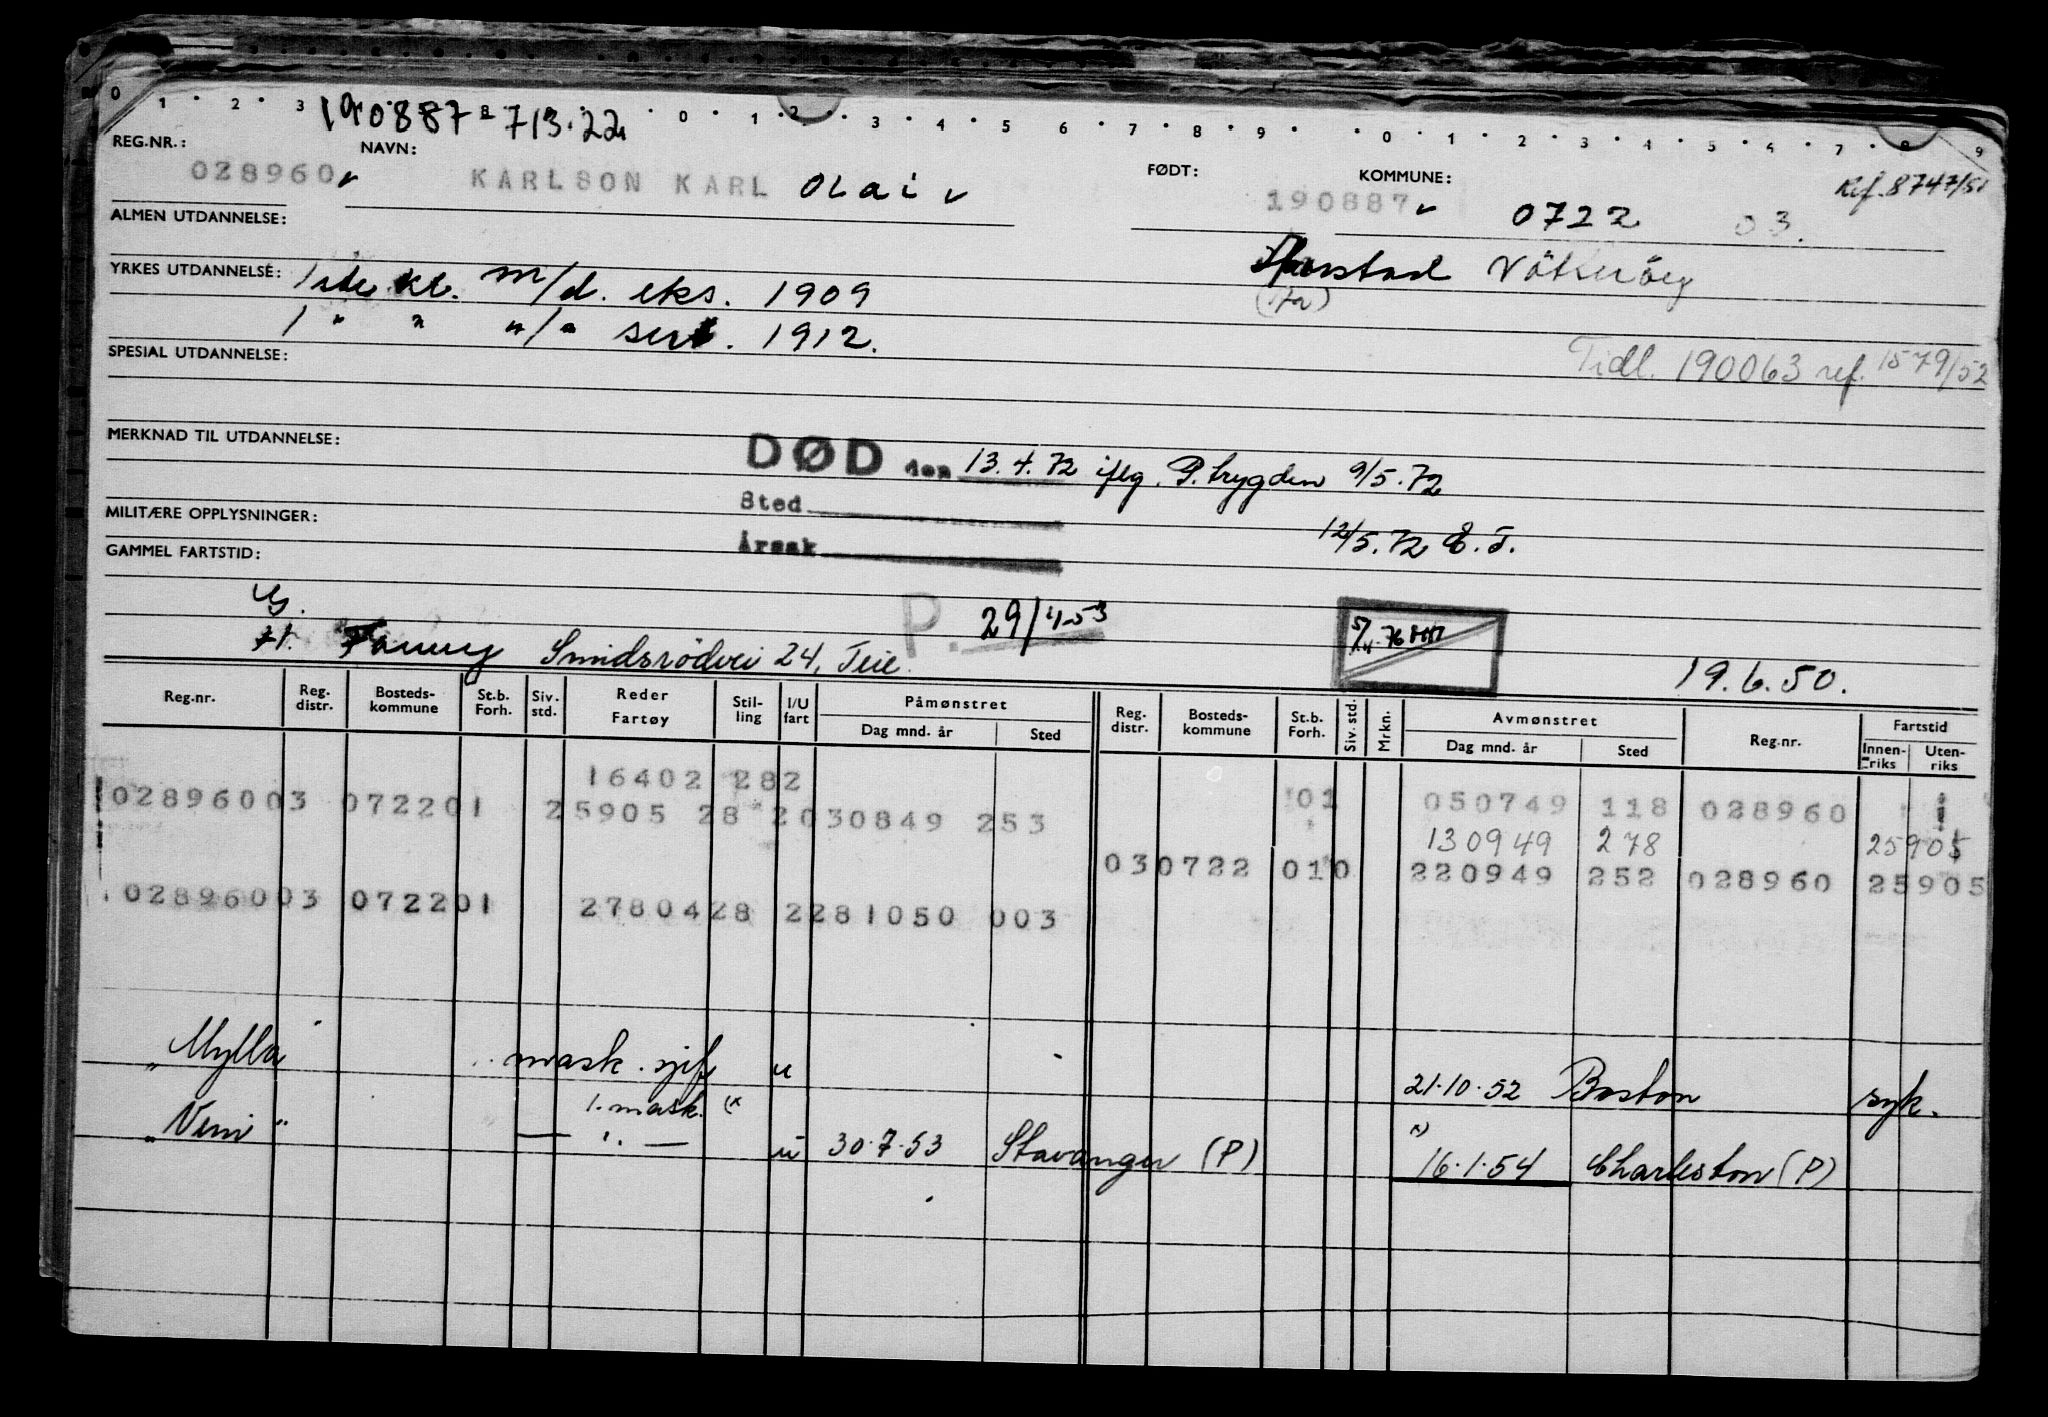 0 1 2 3 0 1 2 3 4 5 6 7 8 9 0 1 2 3 4 5 6 7 8 9
190887-713.22
REG.NR.: NAVN: FØDT: KOMMUNE:
Ref. 8747/51
028960 KARLSON KARL Olai 190887 0722 03.
ALMEN UTDANNELSE:
YRKES UTDANNELSE: 1ste kl. m/d. eks. 1909
1 " " "/" sert. 1912.
SPESIAL UTDANNELSE:
Tidl. 190063 ref. 1579/52
MERKNAD TIL UTDANNELSE:
DØD den 13.4.72 iflg. P.trygden 9/5.72
Sted
MILITÆRE OPPLYSNINGER:
12/5.72
Årsak
GAMMEL FARTSTID:
P. 29/4-53
Smidsrødvei 24, Teie.
19.6.50.
Reg.nr. Reg. distr. Bosteds-kommune St.b. Forh. Siv. std. Reder Fartøy Stil-ling I/U fart Påmønstret Dag mnd. år Sted Reg. distr. Bosteds-kommune St.b. Forh. Siv. std. Mrkn. Avmønstret Dag mnd. år Sted Reg.nr. Fartstid Innen-riks Uten-riks
16402 282
02896003 072201 25905 28 2030849 253 01 050749 118 028960
130949 278 25905
030722 010 220949 252 028960 25905
02896003 072201 2780428 2281050 003
"Mylla mask. sjef u 21.10.52 Boston syk.
1. mask. (x x)
"Veni" — " — u 30.7.53 Stavanger (P) 16.1.54 Charleston (P)